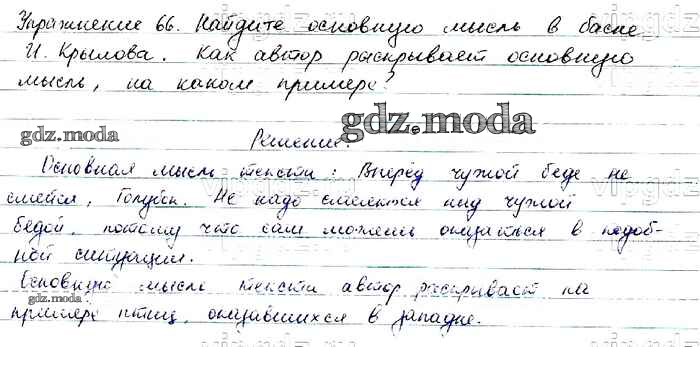 Упражнение 66. Найдите основную мысль в басне
И. Крылова. Как автор раскрывает основную
мысль, на каком примере?
gdz.moda
gdz.moda
Решение.
Основная мысль текста: Вперёд чужой беде не
смейся, Голубок. Не надо смеяться над чужой
бедой, потому что сам можешь оказаться в подоб-
ной ситуации.
Основную мысль текста автор раскрывает на
gdz.moda
примере птиц, оказавшихся в западне.